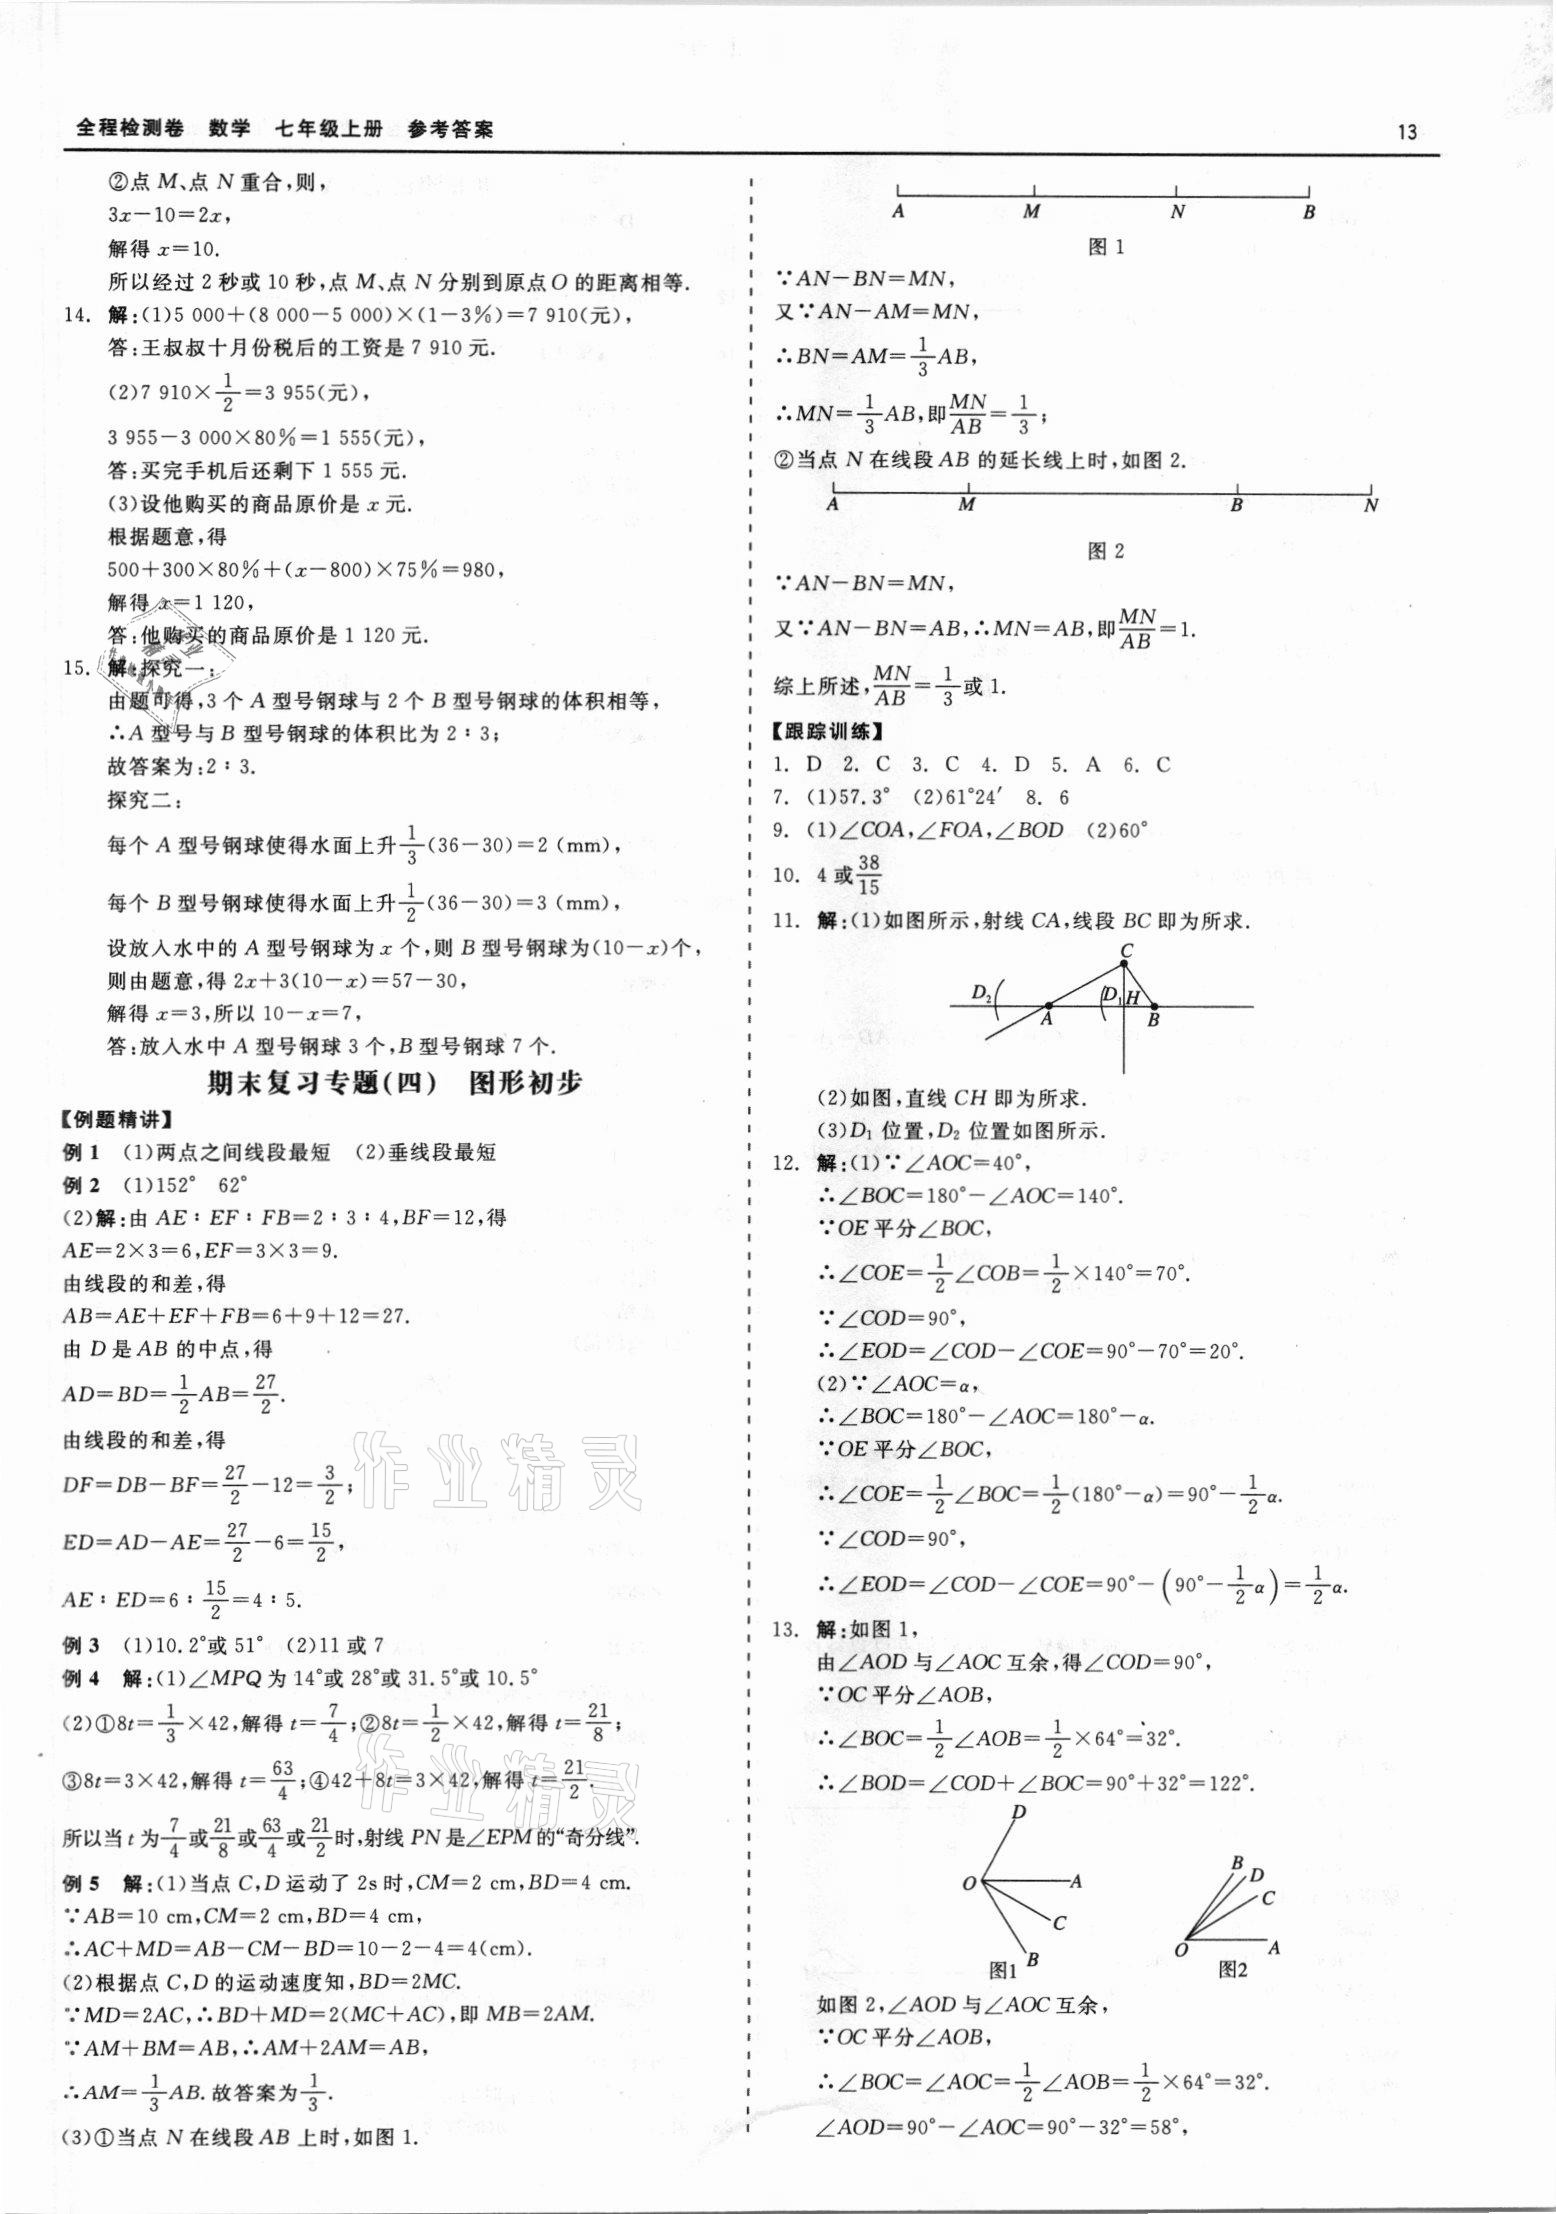 全程检测卷　数学　七年级上册　参考答案　13
②点 M、点 N 重合,则,
3x－10＝2x,
解得 x＝10.
所以经过 2 秒或 10 秒,点 M、点 N 分别到原点 O 的距离相等.
14. 解:(1)5 000＋(8 000－5 000)×(1－3%)＝7 910(元),
答:王叔叔十月份税后的工资是 7 910 元.
(2)7 910×1/2＝3 955(元),
3 955－3 000×80%＝1 555(元),
答:买完手机后还剩下 1 555 元.
(3)设他购买的商品原价是 x 元.
根据题意,得
500＋300×80%＋(x－800)×75%＝980,
解得 x＝1 120,
答:他购买的商品原价是 1 120 元.
15. 解:探究一:
由题可得,3 个 A 型号钢球与 2 个 B 型号钢球的体积相等,
∴A 型号与 B 型号钢球的体积比为 2∶3;
故答案为:2∶3.
探究二:
每个 A 型号钢球使得水面上升1/3(36－30)＝2 (mm),
每个 B 型号钢球使得水面上升1/2(36－30)＝3 (mm),
设放入水中的 A 型号钢球为 x 个,则 B 型号钢球为(10－x)个,
则由题意,得 2x＋3(10－x)＝57－30,
解得 x＝3,所以 10－x＝7,
答:放入水中 A 型号钢球 3 个,B 型号钢球 7 个.
期末复习专题(四)　图形初步
【例题精讲】
例 1　(1)两点之间线段最短　(2)垂线段最短
例 2　(1)152°　62°
(2)解:由 AE∶EF∶FB＝2∶3∶4,BF＝12,得
AE＝2×3＝6,EF＝3×3＝9.
由线段的和差,得
AB＝AE＋EF＋FB＝6＋9＋12＝27.
由 D 是 AB 的中点,得
AD＝BD＝1/2AB＝27/2.
由线段的和差,得
DF＝DB－BF＝27/2－12＝3/2;
ED＝AD－AE＝27/2－6＝15/2,
AE∶ED＝6∶15/2＝4∶5.
例 3　(1)10.2°或 51°　(2)11 或 7
例 4　解:(1)∠MPQ 为 14°或 28°或 31.5°或 10.5°
(2)①8t＝1/3×42,解得 t＝7/4;②8t＝1/2×42,解得 t＝21/8;
③8t＝3×42,解得 t＝63/4;④42＋8t＝3×42,解得 t＝21/2.
所以当 t 为7/4或21/8或63/4或21/2时,射线 PN 是∠EPM的“奇分线”.
例 5　解:(1)当点 C,D 运动了 2s 时,CM＝2 cm,BD＝4 cm.
∵AB＝10 cm,CM＝2 cm,BD＝4 cm,
∴AC＋MD＝AB－CM－BD＝10－2－4＝4(cm).
(2)根据点 C,D 的运动速度知,BD＝2MC.
∵MD＝2AC,∴BD＋MD＝2(MC＋AC),即 MB＝2AM.
∵AM＋BM＝AB,∴AM＋2AM＝AB,
∴AM＝1/3AB.故答案为1/3.
(3)①当点 N 在线段 AB 上时,如图 1.
A　M　N　B
图 1
∵AN－BN＝MN,
又∵AN－AM＝MN,
∴BN＝AM＝1/3AB,
∴MN＝1/3AB,即MN/AB＝1/3;
②当点 N 在线段 AB 的延长线上时,如图 2.
A　M　B　N
图 2
∵AN－BN＝MN,
又∵AN－BN＝AB,∴MN＝AB,即MN/AB＝1.
综上所述,MN/AB＝1/3或 1.
【跟踪训练】
1. D　2. C　3. C　4. D　5. A　6. C
7. (1)57.3°　(2)61°24′　8. 6
9. (1)∠COA,∠FOA,∠BOD　(2)60°
10. 4 或38/15
11. 解:(1)如图所示,射线 CA,线段 BC 即为所求.
C
D₂　D₁　H
A　B
(2)如图,直线 CH 即为所求.
(3)D₁ 位置,D₂ 位置如图所示.
12. 解:(1)∵∠AOC＝40°,
∴∠BOC＝180°－∠AOC＝140°.
∵OE 平分∠BOC,
∴∠COE＝1/2∠COB＝1/2×140°＝70°.
∵∠COD＝90°,
∴∠EOD＝∠COD－∠COE＝90°－70°＝20°.
(2)∵∠AOC＝α,
∴∠BOC＝180°－∠AOC＝180°－α.
∵OE 平分∠BOC,
∴∠COE＝1/2∠BOC＝1/2(180°－α)＝90°－1/2α.
∵∠COD＝90°,
∴∠EOD＝∠COD－∠COE＝90°－(90°－1/2α)＝1/2α.
13. 解:如图 1,
由∠AOD 与∠AOC 互余,得∠COD＝90°,
∵OC 平分∠AOB,
∴∠BOC＝1/2∠AOB＝1/2×64°＝32°.
∴∠BOD＝∠COD＋∠BOC＝90°＋32°＝122°.
D
O　A
C
B
图1
B
D
C
O　A
图2
如图 2,∠AOD 与∠AOC 互余,
∵OC 平分∠AOB,
∴∠BOC＝∠AOC＝1/2∠AOB＝1/2×64°＝32°.
∠AOD＝90°－∠AOC＝90°－32°＝58°,
作业精灵
作业精灵